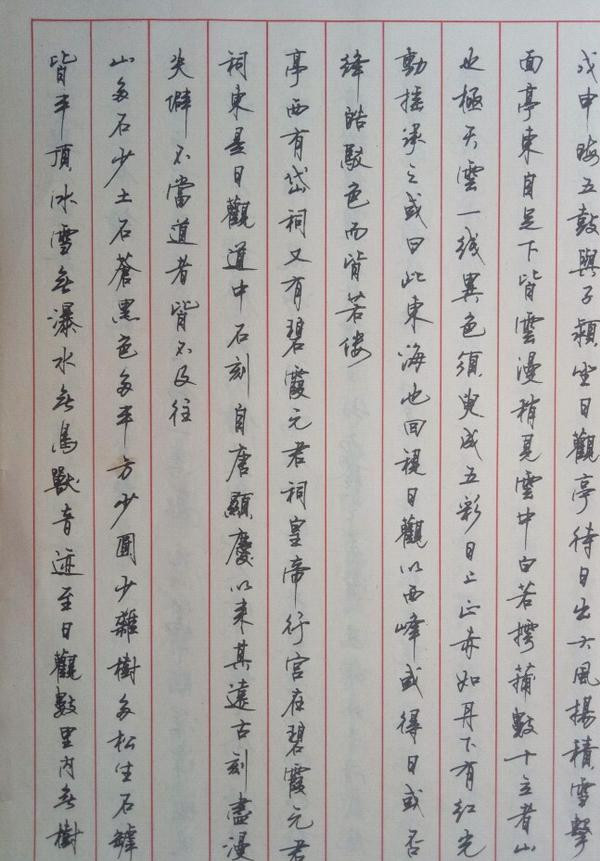 戊申晦五鼓與子潁坐日觀亭待日出大風揚積雪擊
面亭東自足下皆雲漫稍見雲中白若摴蒱數十立者山
也極天雲一线異色須臾成五彩日上正赤如丹下有红光
動揺承之或曰此東海也回視日觀以西峰或得日或否
絳皓駁色而皆若僂
亭西有岱祠又有碧霞元君祠皇帝行宫在碧霞元君
祠東是日觀道中石刻自唐顯慶以来其遠古刻盡漫
失僻不當道者皆不及往
山多石少土石蒼黑色多平方少圓少雜樹多松生石罅
皆平頂冰雪無瀑水無鳥獸音迹至日觀數里内無樹